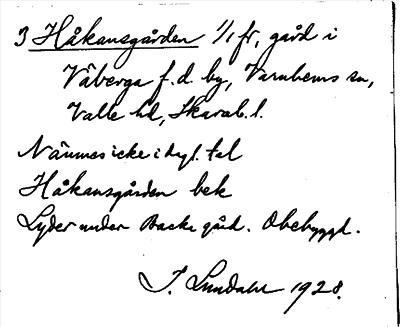 3 Håkansgården 1/1 fr, gård i
Våberga f.d. by, Varnhems sn,
Valle hd, Skarab.l.
Nämnes icke i dagl. tal
Håkansgården bek
Lyder under Backa gård. Obebyggd.
I. Lundahl 1928.